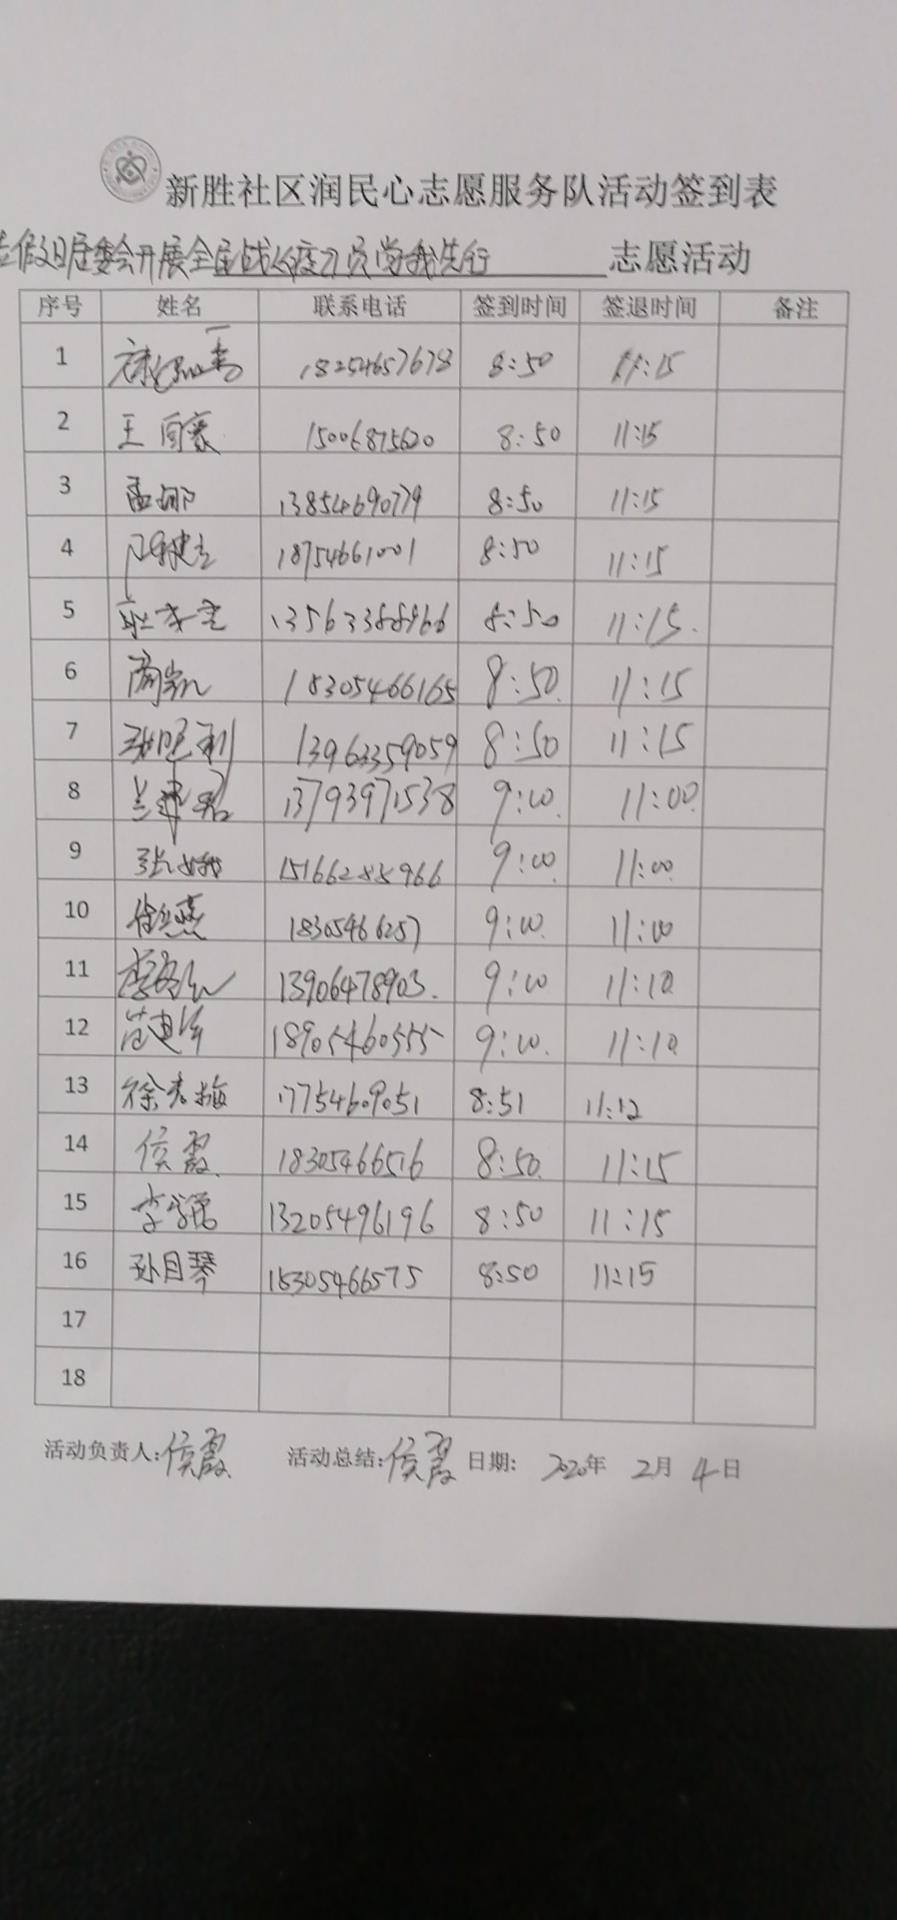 新胜社区润民心志愿服务队活动签到表
假日居委会开展全民战疫 党员我先行 志愿活动
序号 姓名 联系电话 签到时间 签退时间 备注
1 18254657678 8:50 11:15
2 王 15006875620 8:50 11:15
3 孟娜 13854690779 8:50 11:15
4 18754661001 8:50 11:15
5 13563388966 8:50 11:15.
6 18305466165 8:50. 11:15
7 利 13963359059 8:50 11:15
8 兰建 13793971538 9:00. 11:00.
9 张 9:00. 11:00.
10 燕 18305466257 9:00. 11:00
11 李 13906478903. 9:00 11:10
12 范建华 18905460555 9:00. 11:10
13 徐秀梅 17754609051 8:51 11:12
14 侯霞 18305466516 8:50. 11:15
15 李 13205496196 8:50 11:15
16 孙月琴 18305466575 8:50 11:15
17
18
活动负责人:侯霞 活动总结:侯霞 日期: 2020年 2月 4日